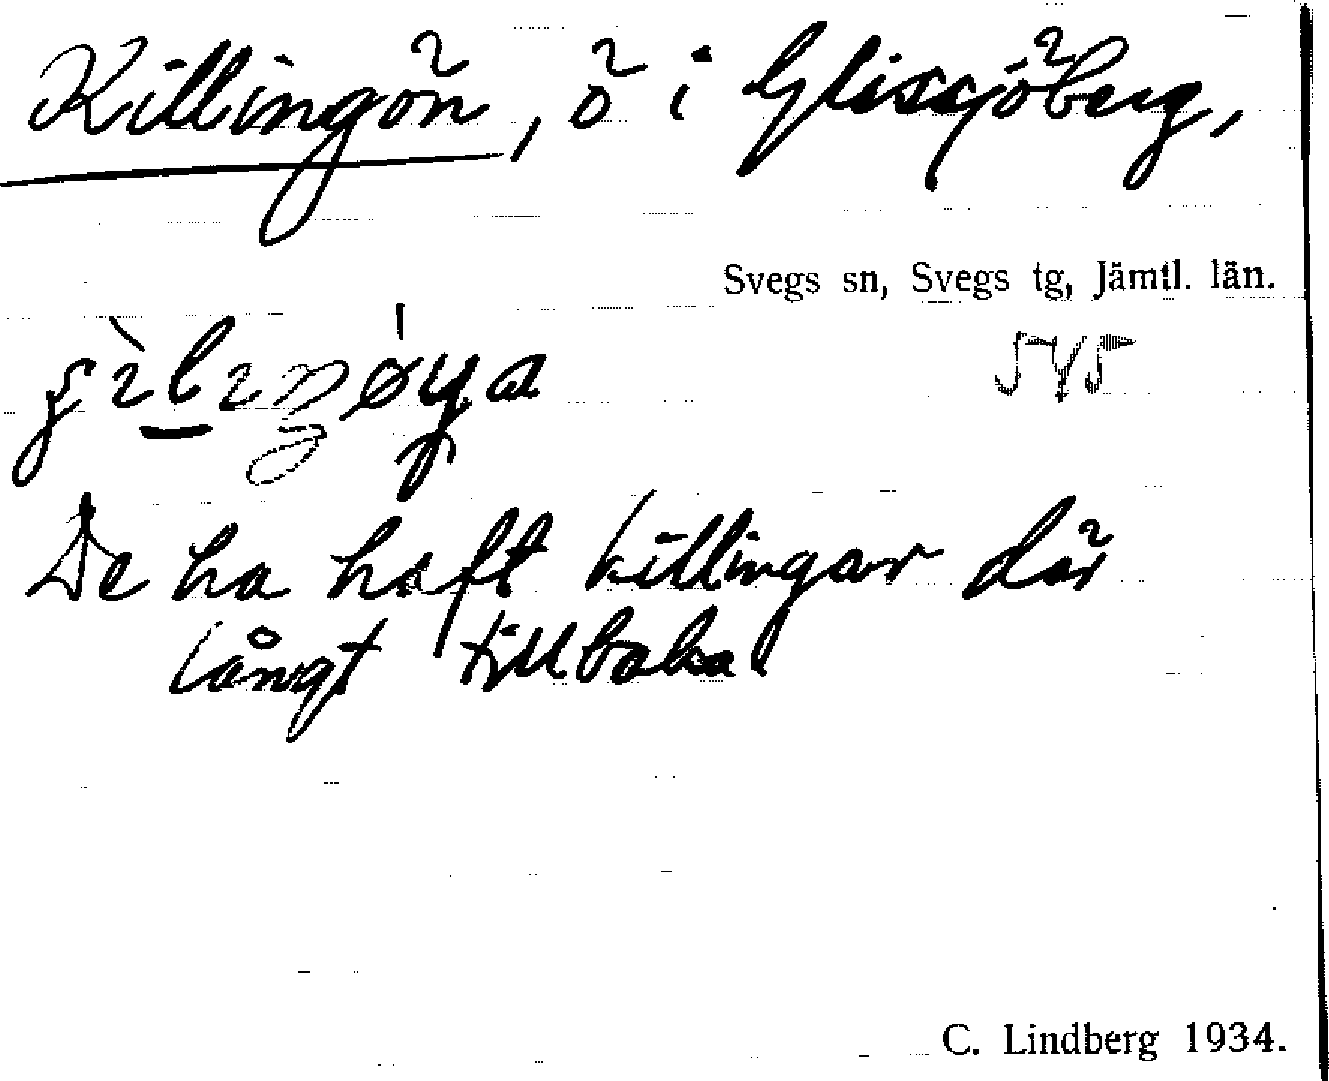 Killingön, ö i Glissjöberg,
Svegs sn, Svegs tg, Jämtl. län.
545
De ha haft killingar där
långt tillbaka
C. Lindberg 1934.